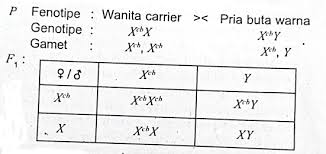 P Fenotipe : Wanita carrier >< Pria buta warna
Genotipe : XᶜᵇX XᶜᵇY
Gamet : Xᶜᵇ, Xᶜᵇ Xᶜᵇ, Y
F₁ :
♀/♂ Xᶜᵇ Y
Xᶜᵇ XᶜᵇXᶜᵇ XᶜᵇY
X XᶜᵇX XY